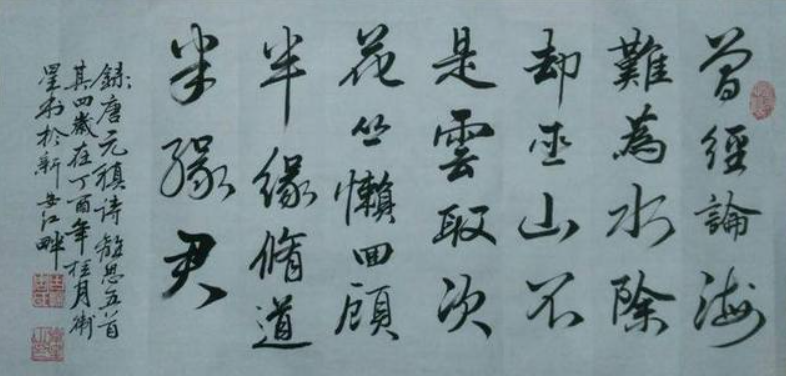 曾經論海
難為水除
却巫山不
是雲取次
花丛懶回顧
半緣脩道
半緣君
錄唐元稹诗離思五首
其四歲在丁酉年桂月衛
星书於新安江畔